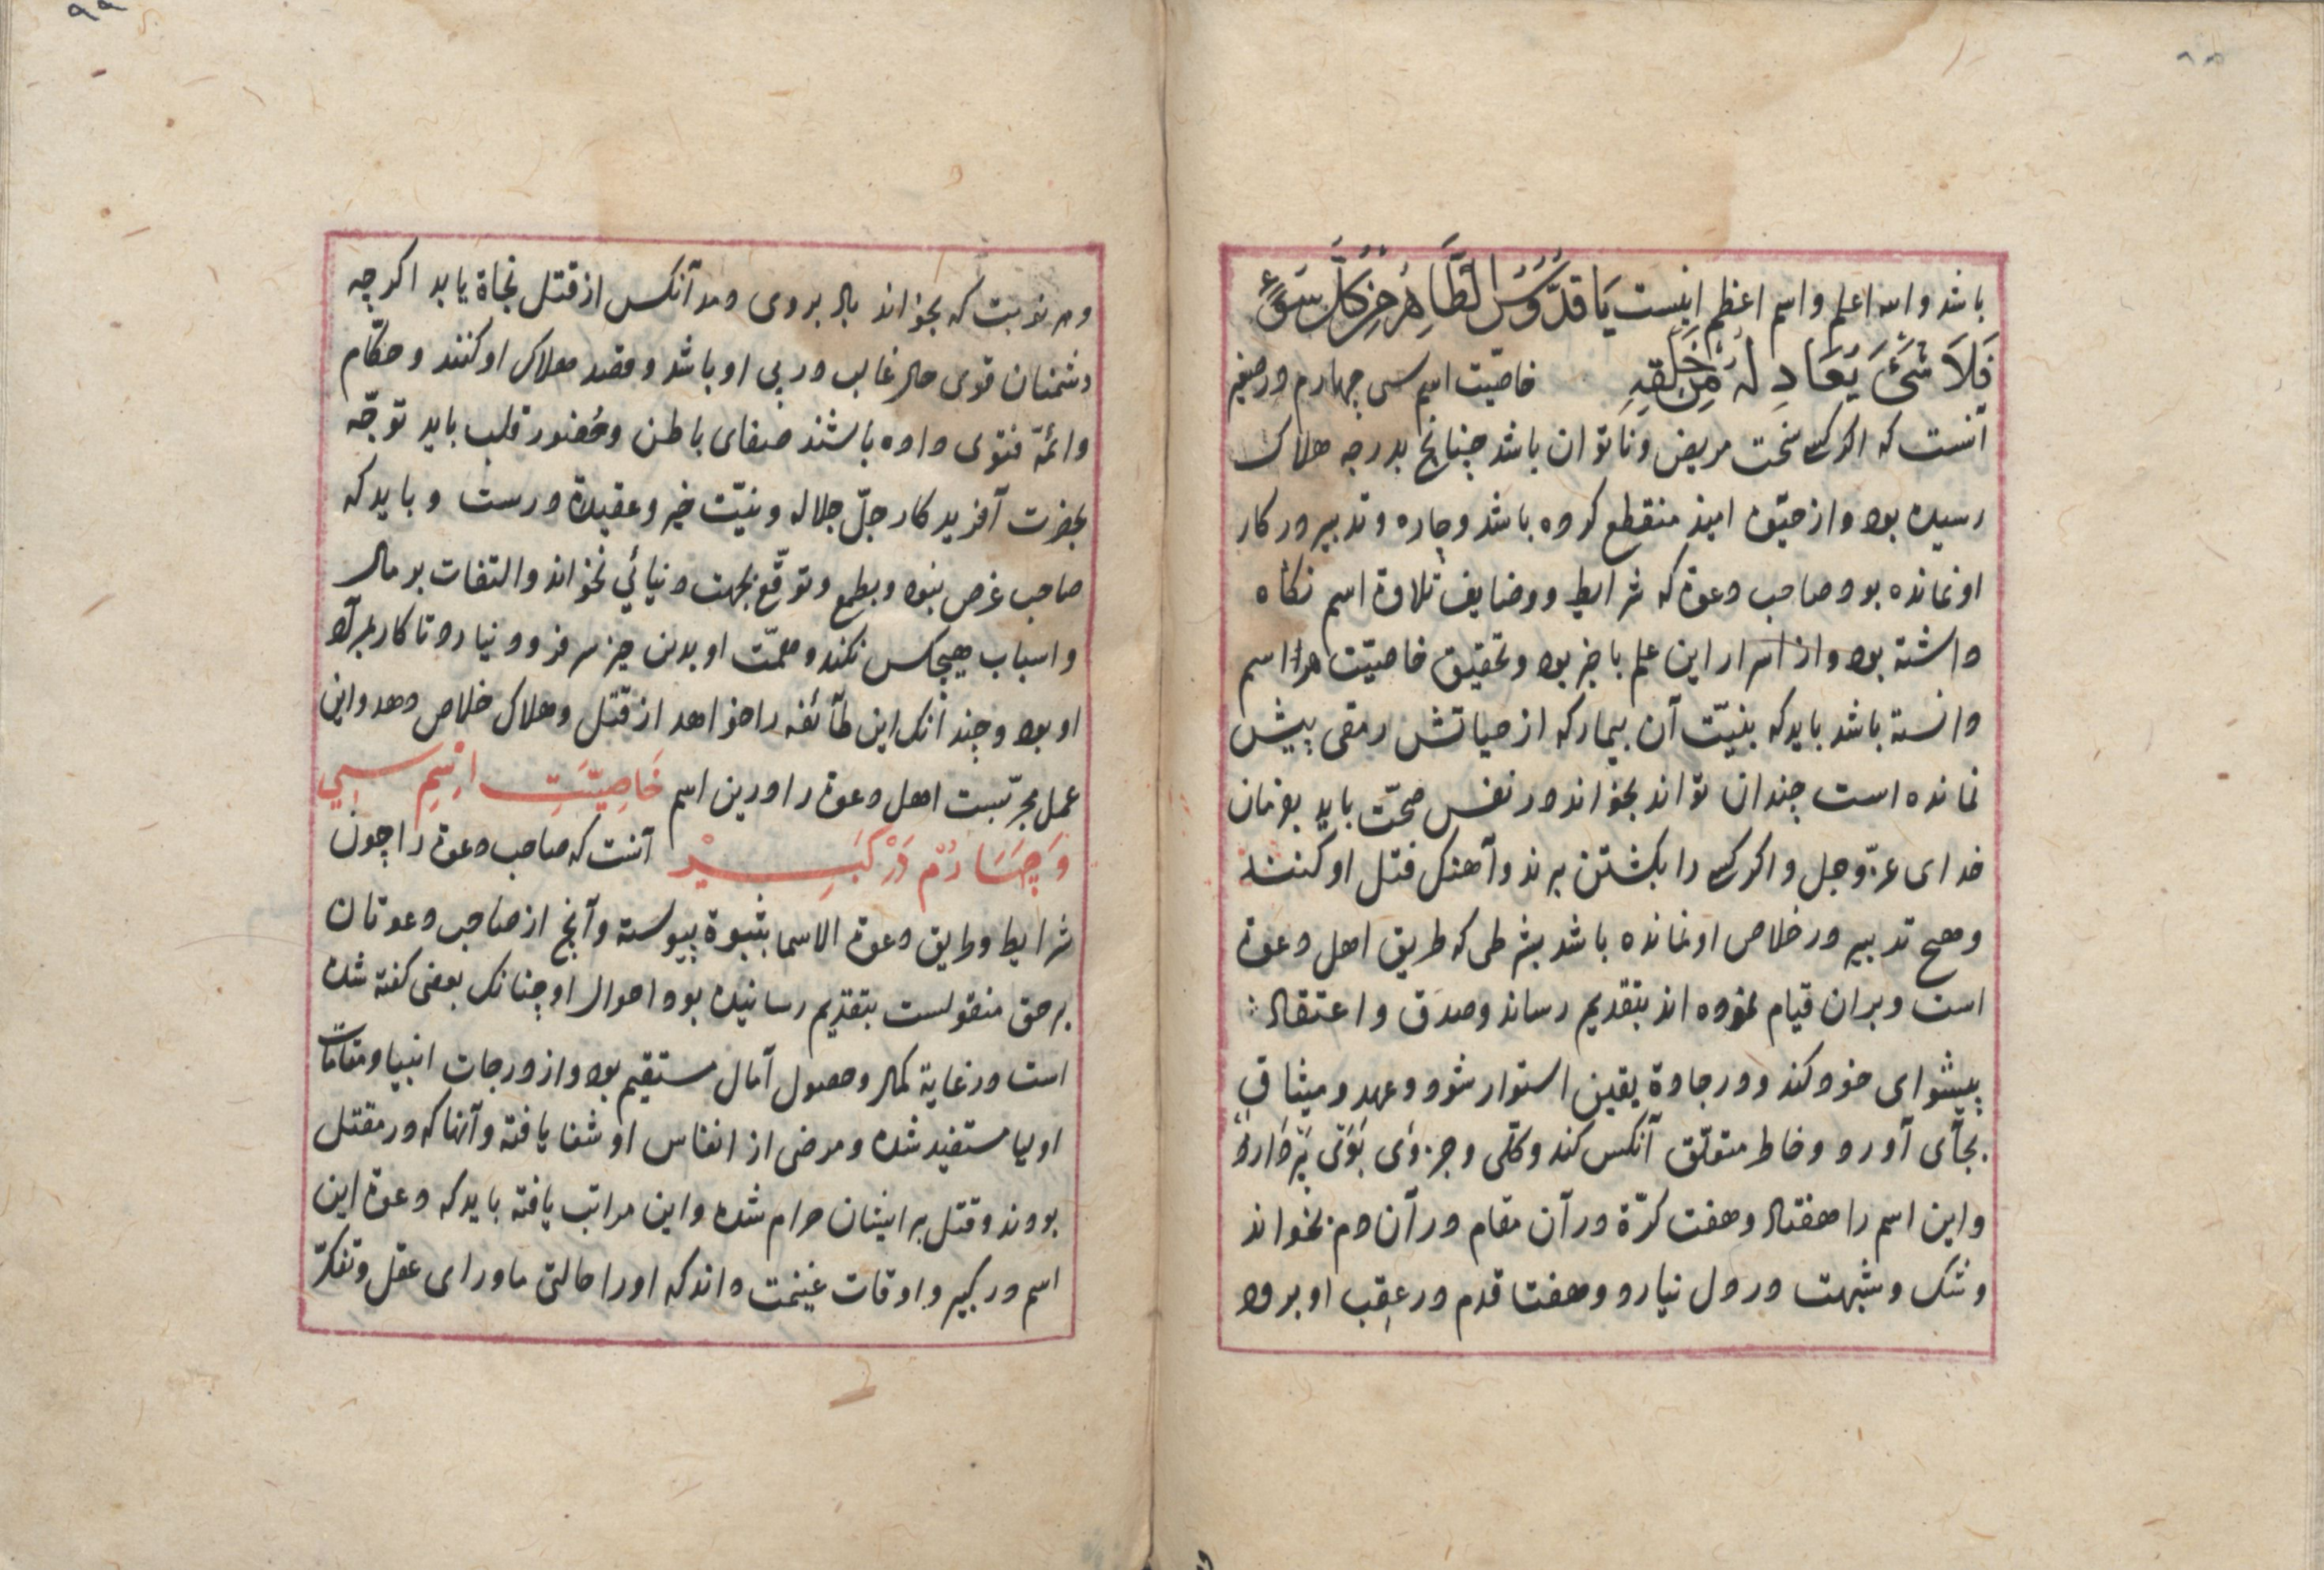 باشد والله اعلم واسم اعظم اینست یَا قُدُّوسُ الطَّاهِرُ مِنْ كُلِّ سُوءٍ
فَلَا شَیْءَ یُعَادِلُهُ مِنْ خَلْقِهِ خاصیّت اسم سی چهارم در صغیر
آنست که اکر کسی سخت مریض وناتوان باشد چنانچ بدرجه هلاک
رسیده بود واز حیوة امید منقطع کرده باشد وچاره وتدبیر در کار
او نمانده بود صاحب دعوة که شرایط ووضایف تلاوة اسم نکاه
داشته بود واز اسرار این علم باخبر بود وتحقیق خاصیّت هر اسم
دانسته باشد باید که بنیّت آن بیمار که از حیاتش رمقی بیش
نمانده است چندان تواند بخواند در نفس صحّت یابد بفرمان
خدای عزّ وجل واکر کسی را بکشتن برند وآهنک قتل او کنند
وهیچ تدبیر در خلاص او نمانده باشد بشرطی که طریق اهل دعوة
است وبران قیام نموده اند بتقدیم رساند وصدق واعتقاد
پیشوای خود کند ودر جادة یقین استوار شود وعهد ومیثاق
بجآی آورد وخاطر متعلّق آنکس کند وکلّی وجزوی
واین اسم را هفتاد وهفت کرّة در آن مقام در آن دم بخواند
وشک وشبهت در دل نیارد وهفت قدم در عقب او برود
وهر نوبت که بخواند باد بر وی دمد آنکس از قتل نجاة یابد اکرچه
دشمنان قوی حال غالب در پی او باشد وقصد هلاک او کنند وحکّام
وائمّة فتوی داده باشند صفای باطن وحُضور قلب باید توجّه
بحضرت آفریدکار جلّ جلاله ونیّت خیر وعقیدة درست وباید که
صاحب غرض نبود وبطمع وتوقّع بجهت دنیائی نخواند والتفات بر مال
واسباب هیچکس نکند وهمّت او بدین چیز سر فرود نیارد تا کار بمراد
او بود وچندانک این طآئفه را خواهد از قتل وهلاک خلاص دهد واین
عمل مجرّبست اهل دعوة را درین اسم خَاصِیَّتِ اِسْمِ سِی
وَچَهَارُمْ دَرْ كَبِیرْ آنست که صاحب دعوة را چون
شرایط وطریق دعوة الاسما بثبوة پیوسته وآنچ از صاحب دعوتان
برحق منقولست بتقدیم رسانیده بود احوال او چنانک بعضی کفته شده
است در غایة کمال وحصول آمال مستقیم بود واز درجات انبیا ومقامات
اولیا مستفید شده ومرضی از انفاس او شفا یافته وآنها که در مقتل
بودند وقتل بر ایشان حرام شده واین مراتب یافته باید که دعوة این
اسم در کبیر واوقات غنیمت داند که اورا حالتی ماورای عقل وتفکّر